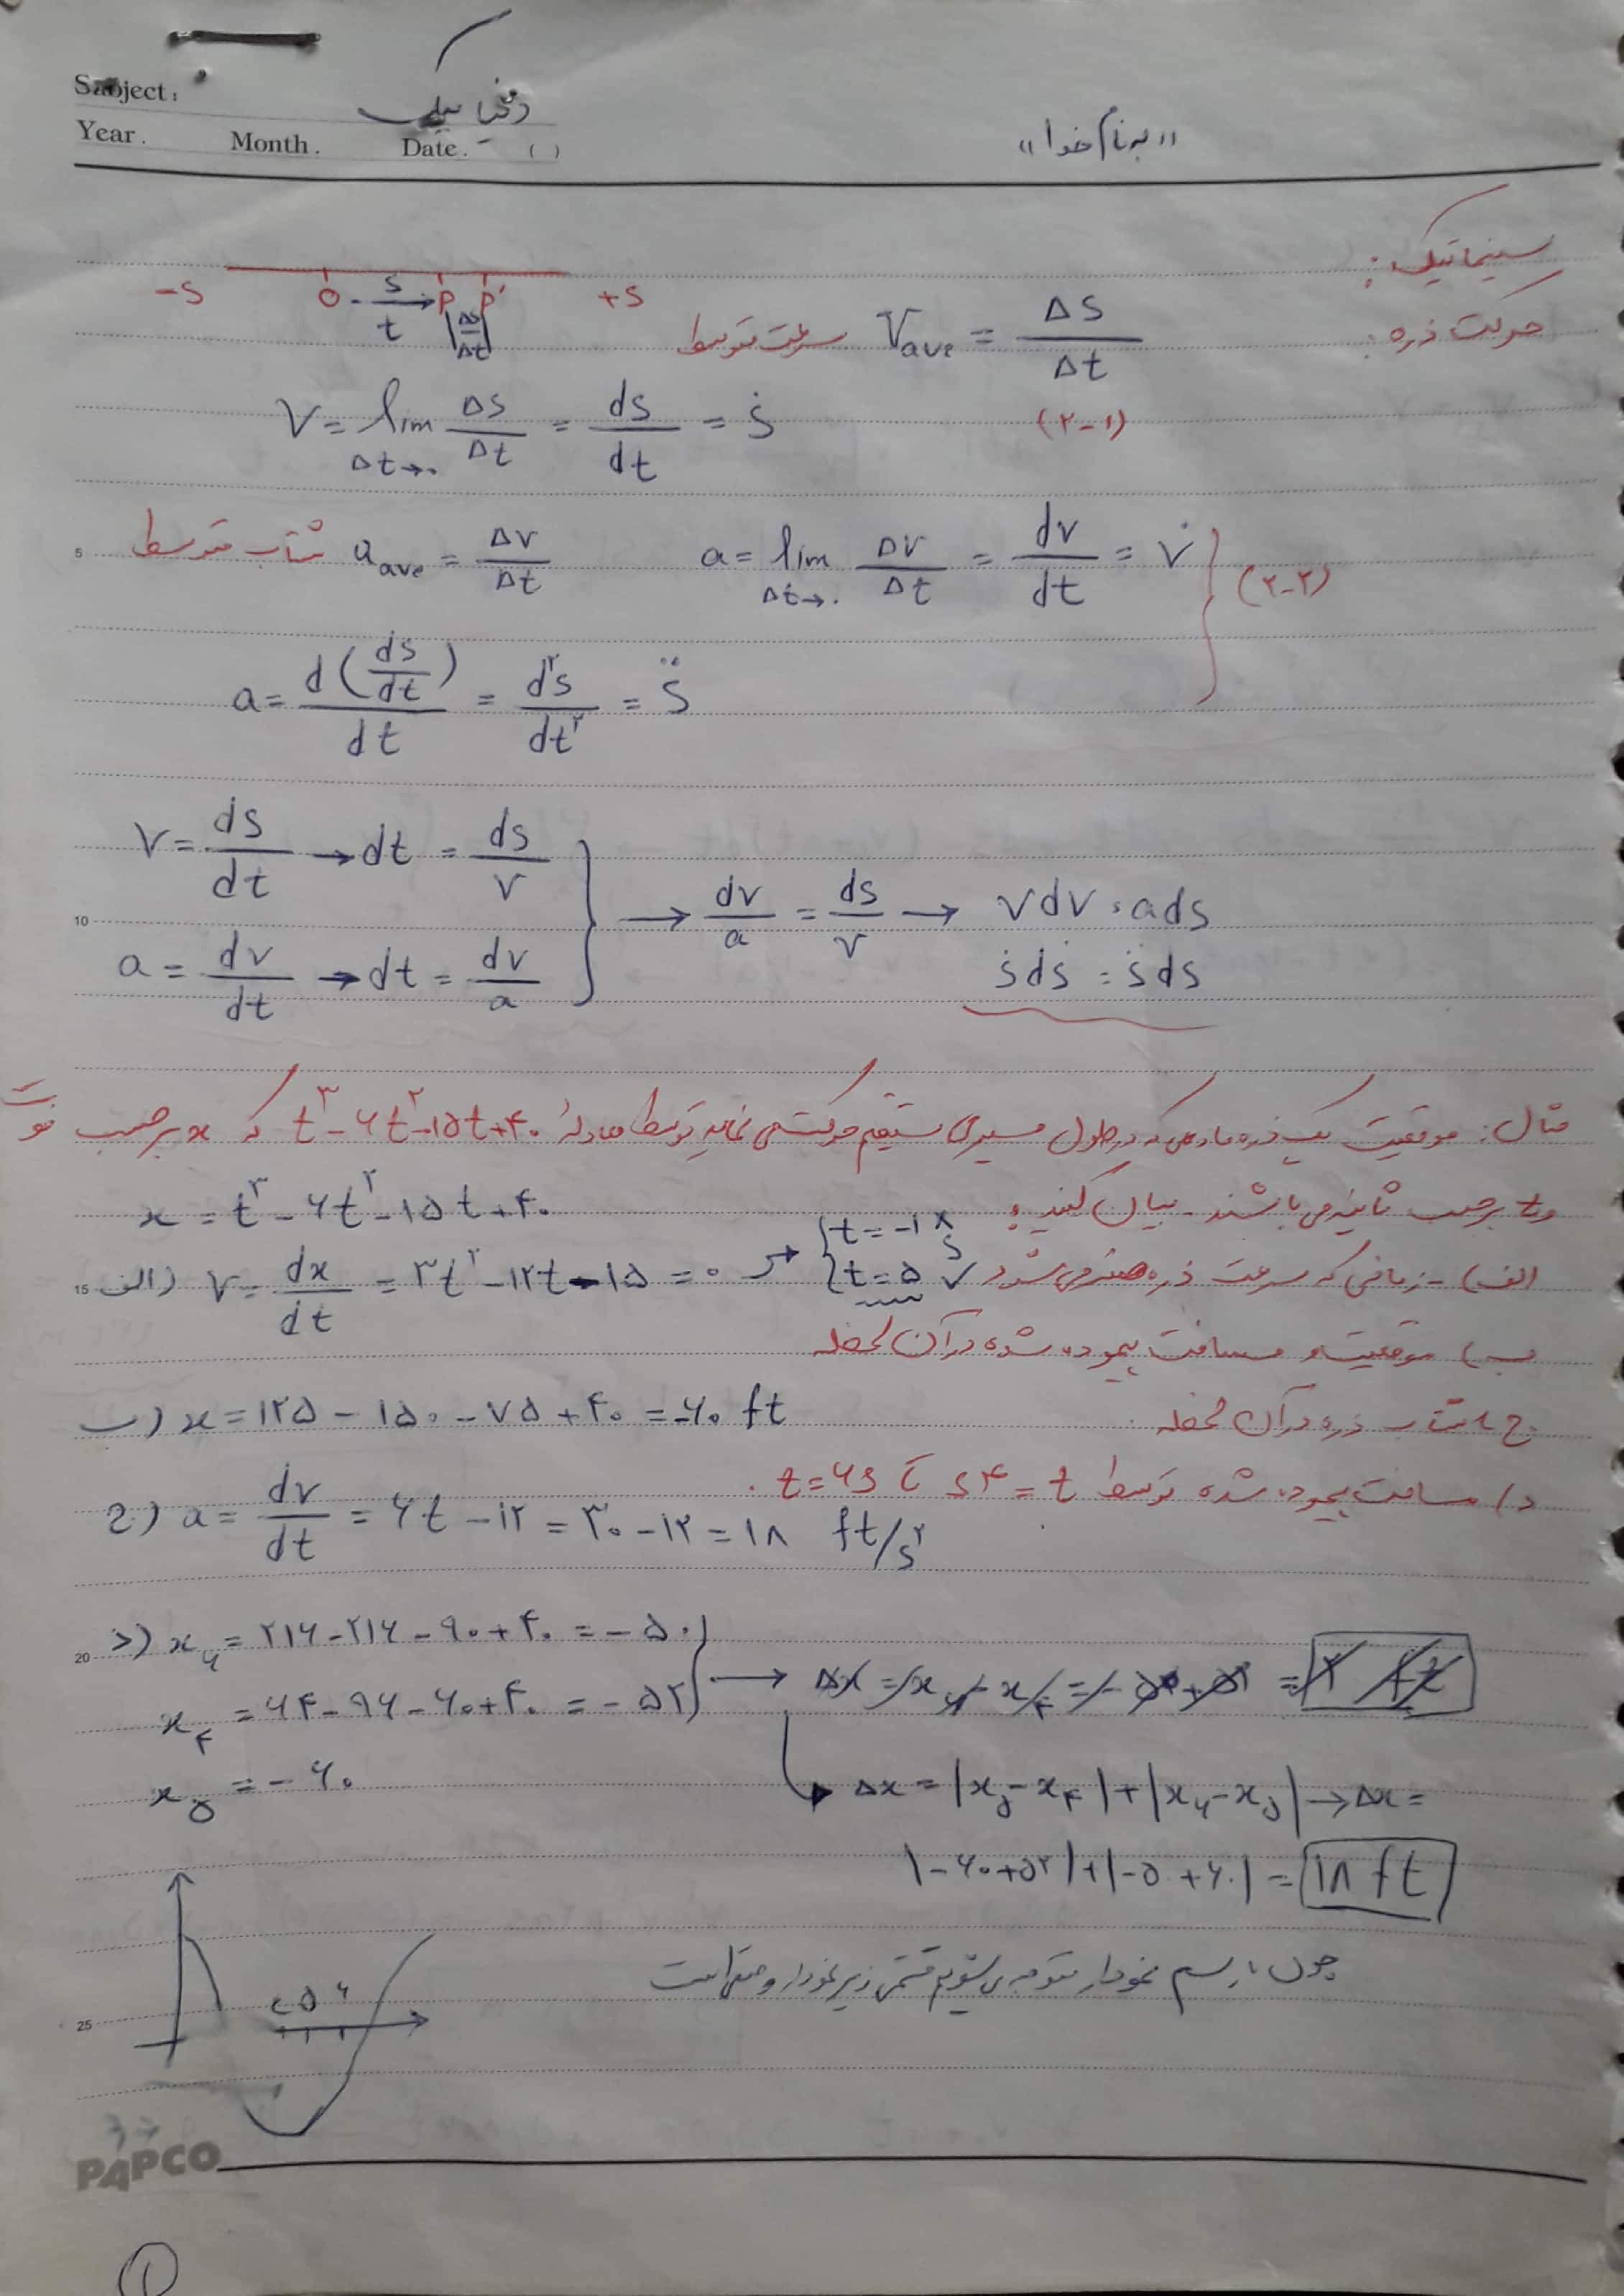 Subject:
Year. Month. Date. ( )
دینامیک
«به نام خدا»
سینماتیک:
حرکت ذره:
-S O S t P P' +S
Δs Δt
سرعت متوسط V_ave = Δs/Δt
(۲-۱)
V = lim Δt→۰ Δs/Δt = ds/dt = ṡ
5
شتاب متوسط a_ave = Δv/Δt a = lim Δt→۰ Δv/Δt = dv/dt = v̇ (۲-۲)
a = d(ds/dt)/dt = d²s/dt² = s̈
V = ds/dt → dt = ds/v
a = dv/dt → dt = dv/a
→ dv/a = ds/v → vdv = ads
ṡdṡ = s̈ds
10
مثال: موقعیت یک ذره مادی که در طول مسیری مستقیم حرکت می نماید توسط معادلهٔ t³-۶t²-۱۵t+۴۰ که x بر حسب فوت
و t برحسب ثانیه می باشند. بیان کنید:
x = t³ - ۶t² - ۱۵t + ۴۰
الف) - زمانی که سرعت ذره صفر می شود
15
الف) V = dx/dt = ۳t² - ۱۲t - ۱۵ = ۰ → { t = -۱ × t = ۵ s ✓
ب) موقعیت و مسافت پیموده شده در آن لحظه
ب) x = ۱۲۵ - ۱۵۰ - ۷۵ + ۴۰ = -۶۰ ft
ج) شتاب ذره در آن لحظه
د) مسافت پیموده شده توسط t = ۴s تا t = ۶s.
ج) a = dv/dt = ۶t - ۱۲ = ۳۰ - ۱۲ = ۱۸ ft/s²
20
د) x₆ = ۲۱۶ - ۲۱۶ - ۹۰ + ۴۰ = -۵۰
x₄ = ۶۴ - ۹۶ - ۶۰ + ۴۰ = -۵۲
→ Δx = x₆ - x₄ = -۵۰ + ۵۲ = ۲ ft
x₅ = -۶۰
Δx = |x₅ - x₄| + |x₆ - x₅| → Δx =
|-۶۰+۵۲| + |-۵۰+۶۰| = ۱۸ ft
چون با رسم نمودار متوجه می شویم قسمتی زیر نمودار و منفی است
۴ ۵ ۶
25
PAPCO
۱